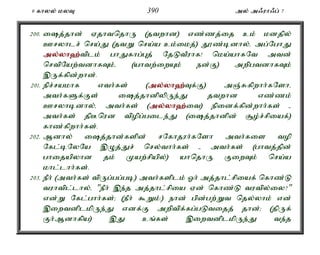 9 காலல் மலவு 390 அல் அஃராஃப் 7
200. ஷைத்தான் ஏதாவதொரு (தவறான) எண்ணத்தை உம் மனதில்
ஊசலாடச் செய்து (தவறு செய்ய உம்மைத்) தூண்டினால், அப்போது
அல்லாஹ்விடம் பாதுகாப்புத் தேடுவீராக! மெய்யாகவே அவன்
செவியேற்பவனாகவும், (யாவற்றையும் நன்கு) அறிபவனாகவும்
இருக்கின்றான்.
201. நிச்சயமாக எவர்கள் (அல்லாஹ்வுக்கு) அஞ்சுகிறார்களோ,
அவர்களுக்குள் ஷைத்தானிலிருந்து தவறான எண்ணம்
ஊசலாடினால், அவர்கள் (அல்லாஹ்வை) நினைக்கின்றார்கள் -
அவர்கள் திடீரென விழிப்படைந்து (ஷைத்தானின் சூழ்ச்சியைக்)
காண்கிறார்கள்.
202. ஆனால் ஷைத்தான்களின் சகோதரர்களோ அவர்களை வழி
கேட்டிலேயே இழுத்துச் செல்வார்கள் - அவர்கள் (பாவத்தின்
பாதையிலான தம் முயற்சியில்) யாதொரு குறைவும் செய்ய
மாட்டார்கள்.
203. நீர் (அவர்கள் விருப்பப்படி) அவர்களிடம் ஓர் அத்தாட்சியைக் கொண்டு
வராவிட்டால், "நீர் இந்த அத்தாட்சியை ஏன் கொண்டு வரவில்லை?"
என்று கேட்பார்கள்; (நீர் கூறும்:) நான் பின்பற்றுவ தெல்லாம் என்
இறைவனிடமிருந்து எனக்கு அறிவிக்கப்படுவதைத் தான்; (திருக்
குர்ஆனாகிய) இது உங்கள் இறைவனிடமிருந்து வந்த